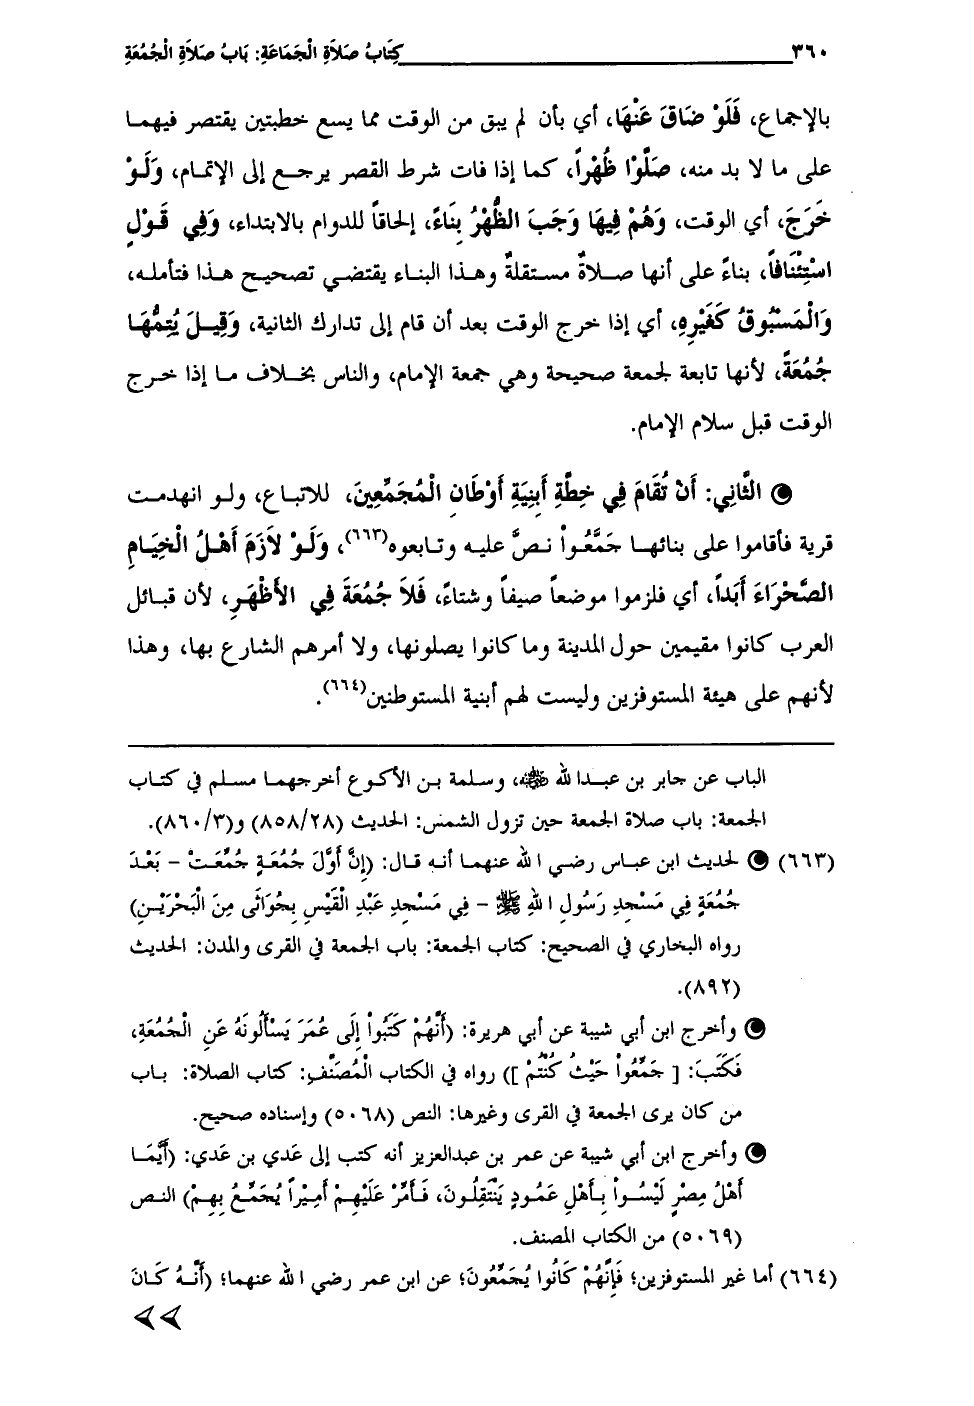 ٣٦٠ كِتَابُ صَلاَةِ الْجَمَاعَةِ: بَابُ صَلاَةِ الْجُمُعَةِ
بالإجماع، فَلَوْ ضَاقَ عَنْهَا، أي بأن لم يبق من الوقت مما يسع خطبتين يقتصر فيهما
على ما لا بد منه، صَلَّوْا ظُهْراً، كما إذا فات شرط القصر يرجع إلى الإتمام، وَلَوْ
خَرَجَ، أي الوقت، وَهُمْ فِيهَا وَجَبَ الظُّهْرُ بِنَاءً، إلحاقاً للدوام بالابتداء، وَفِي قَوْلٍ
اسْتِئْنَافاً، بناءً على أنها صلاةٌ مستقلةٌ وهذا البناء يقتضي تصحيح هذا فتأمله،
وَالْمَسْبُوقُ كَغَيْرِهِ، أي إذا خرج الوقت بعد أن قام إلى تدارك الثانية، وَقِيلَ يُتِمُّهَا
جُمُعَةً، لأنها تابعة لجمعة صحيحة وهي جمعة الإمام، والناس بخلاف ما إذا خرج
الوقت قبل سلام الإمام.
الثَّانِي: أَنْ تُقَامَ فِي خِطَّةِ أَبْنِيَةِ أَوْطَانِ الْمُجَمِّعِينَ، للاتباع، ولو انهدمت
قرية فأقاموا على بنائها جَمَّعُواْ نصَّ عليه وتابعوه(٦٦٣)، وَلَوْ لاَزَمَ أَهْلُ الْخِيَامِ
الصَّحْرَاءَ أَبَداً، أي فلزموا موضعاً صيفاً وشتاءً، فَلاَ جُمُعَةَ فِي الأَظْهَرِ، لأن قبائل
العرب كانوا مقيمين حول المدينة وما كانوا يصلونها، ولا أمرهم الشارع بها، وهذا
لأنهم على هيئة المستوفزين وليست لهم أبنية المستوطنين(٦٦٤).
الباب عن جابر بن عبدالله ﷺ، وسلمة بن الأكوع أخرجهما مسلم في كتاب
الجمعة: باب صلاة الجمعة حين تزول الشمس: الحديث (٨٥٨/٢٨) و(٨٦٠/٣).
(٦٦٣) لحديث ابن عباس رضي الله عنهما أنه قال: (إِنَّ أَوَّلَ جُمُعَةٍ جُمِّعَتْ - بَعْدَ
جُمُعَةٍ فِي مَسْجِدِ رَسُولِ اللهِ ﷺ - فِي مَسْجِدِ عَبْدِ الْقَيْسِ بِجُوَاثَى مِنَ الْبَحْرَيْنِ)
رواه البخاري في الصحيح: كتاب الجمعة: باب الجمعة في القرى والمدن: الحديث
(٨٩٢).
وأخرج ابن أبي شيبة عن أبي هريرة: (أَنَّهُمْ كَتَبُواْ إِلَى عُمَرَ يَسْأَلُونَهُ عَنِ الْجُمُعَةِ،
فَكَتَبَ: [ جَمِّعُواْ حَيْثُ كُنْتُمْ ]) رواه في الكتاب الْمُصَنَّفِ: كتاب الصلاة: باب
من كان يرى الجمعة في القرى وغيرها: النص (٥٠٦٨) وإسناده صحيح.
وأخرج ابن أبي شيبة عن عمر بن عبدالعزيز أنه كتب إلى عَدي بن عَدي: (أَيُّمَا
أَهْلُ مِصْرٍ لَيْسُواْ بِأَهْلِ عَمُودٍ يَنْتَقِلُونَ، فَأَمِّرْ عَلَيْهِمْ أَمِيْراً يُجَمِّعُ بِهِمْ) النص
(٥٠٦٩) من الكتاب المصنف.
(٦٦٤) أما غير المستوفزين؛ فَإِنَّهُمْ كَانُوا يُجَمِّعُونَ؛ عن ابن عمر رضي الله عنهما؛ (أَنَّهُ كَانَ